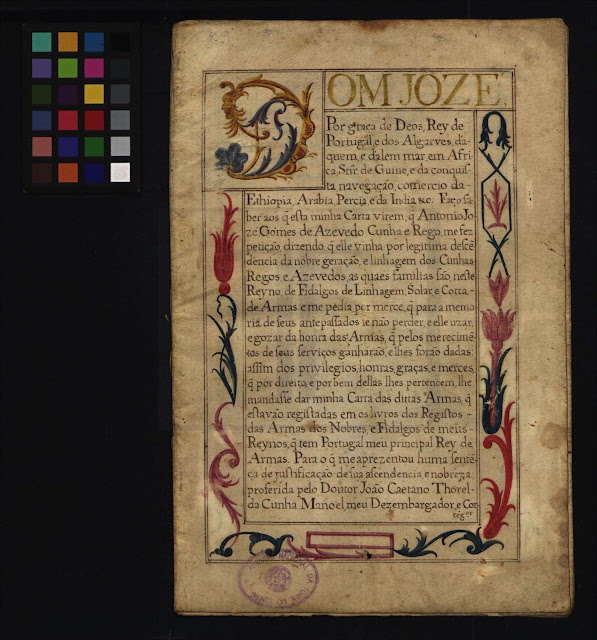 DOM JOZE,
Por graça de Deos, Rey de
Portugal, e dos Algarves, da-
quem, e dalem mar, em Afri
ca Snr de Guine, e da conquis
ta navegação, comercio da-
Ethiopia, Arabia, Percia e da India &c. Faço sa
ber aos q̃ esta minha Carta virem, q̃ Antonio Jo
ze Gomes de Azevedo Cunha e Rego, me fez
petição, dizendo, q̃ elle vinha por legitima descẽ
dencia da nobre geração, e linhagem dos Cunhas
Regos e Azevedos, as quaes familias são, neste
Reyno de Fidalgos de Linhagem, Solar, e Cotta-
de Armas e me pedia por merce, q̃ para a memo
ria de seus antepassados se não perder, e elle uzar,
e gozar da honra das Armas, q̃ pelos merecimẽ
tos de seus serviços ganharão, e lhes forão dadas:
assim dos privilegios, honras, graças, e merces,
q̃ por direito, e por bem dellas lhes pertencem, lhe
mandasse dar minha Carta das dittas Armas, q̃
estavão registadas em os livros dos Registos-
das Armas dos Nobres, e Fidalgos de meus-
Reynos, q̃ tem Portugal meu principal Rey de
Armas. Para o q̃ me aprezentou huma sentẽ
ça de justificação de sua ascendencia e nobreza
proferida pelo Doutor João Caetano Thorel-
da Cunha Manoel, meu Dezembargador, e Cor-
reg.or